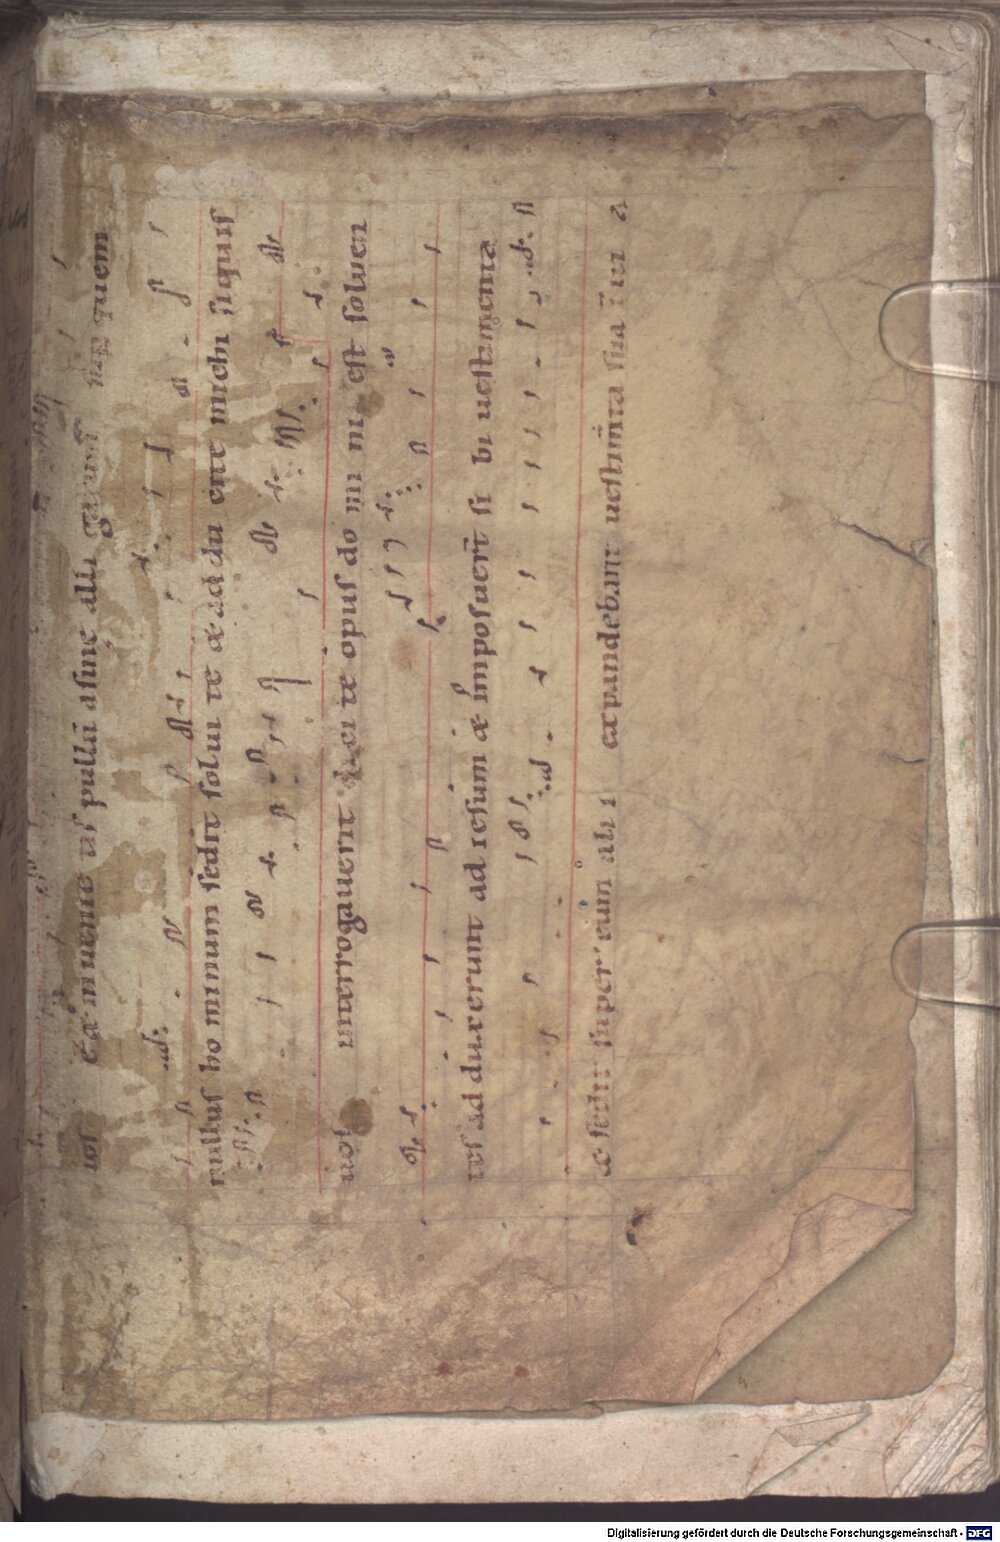 uos et inuenie tis pullū asine alligatum sup quem
nullus ho minum sedit solui te & ad du cite michi siquis
uos interrogauerit dici te opus do mi ni est soluen
tes ad duxerunt ad iesum & imposuerт̄ si bi uestimenta
& sedit super eum alii expandebant uestim̄ta sua ī ui a
Digitalisierung gefördert durch die Deutsche Forschungsgemeinschaft - DFG